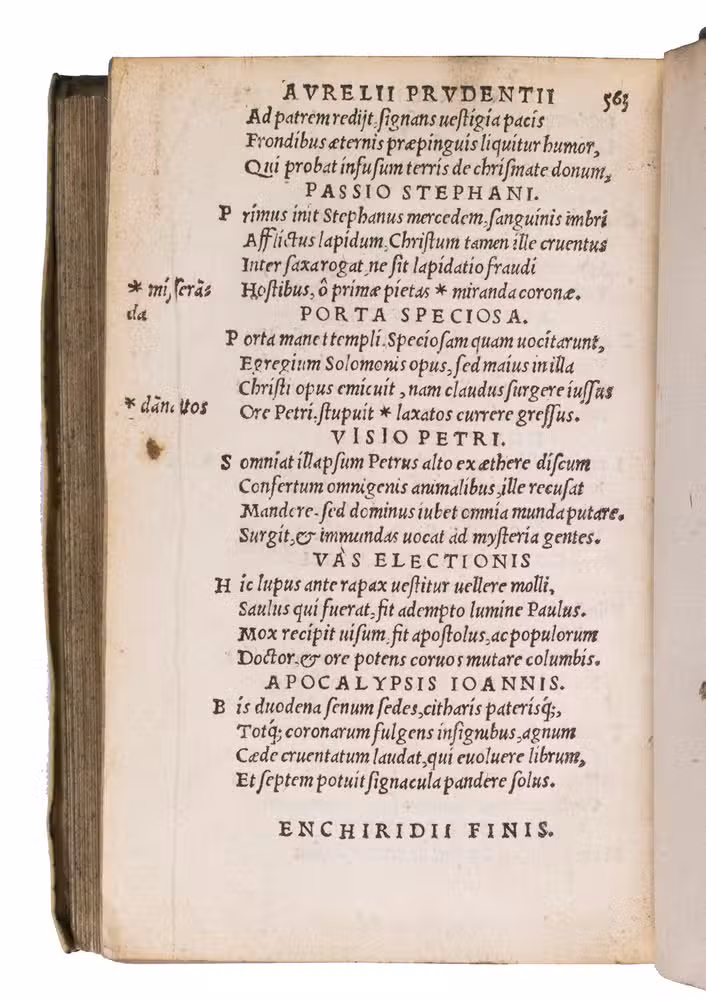 AVRELII PRVDENTII 563
Ad patrem redijt, signans uestigia pacis
Frondibus æternis præpinguis liquitur humor,
Qui probat infusum terris de chrismate donum,
PASSIO STEPHANI.
Primus init Stephanus mercedem, sanguinis imbri
Afflictus lapidum, Christum tamen ille cruentus
Inter saxa rogat, ne sit lapidatio fraudi
* miserãda
Hostibus, ô primæ pietas * miranda coronæ.
PORTA SPECIOSA.
Porta manet templi, Speciosam quam uocitarunt,
Egregium Solomonis opus, sed maius in illa
Christi opus emicuit, nam claudus surgere iussus
* dãnatos
Ore Petri, stupuit * laxatos currere gressus.
VISIO PETRI.
Somniat illapsum Petrus alto ex æthere discum
Confertum omnigenis animalibus, ille recusat
Mandere, sed dominus iubet omnia munda putare.
Surgit, & immundas uocat ad mysteria gentes.
VAS ELECTIONIS
Hic lupus ante rapax uestitur uellere molli,
Saulus qui fuerat, fit adempto lumine Paulus.
Mox recipit uisum, fit apostolus, ac populorum
Doctor, & ore potens coruos mutare columbis.
APOCALYPSIS IOANNIS.
Bis duodena senum sedes, citharis paterisq;,
Totq́; coronarum fulgens insignibus, agnum
Cæde cruentatum laudat, qui euoluere librum,
Et septem potuit signacula pandere solus.
ENCHIRIDII FINIS.